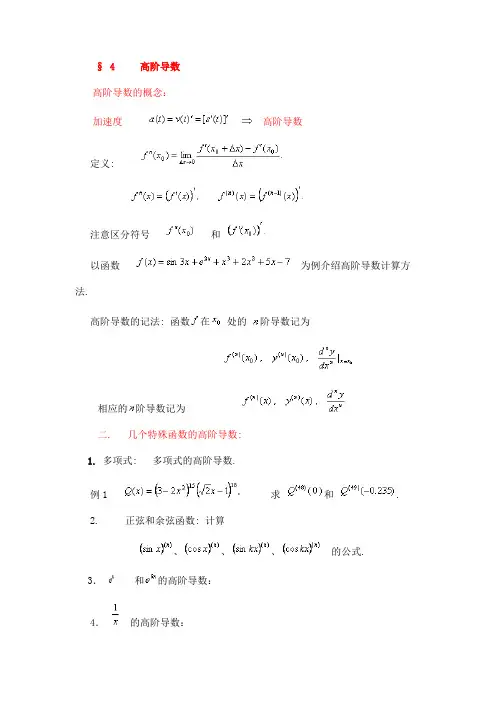 § 4 高阶导数
高阶导数的概念：
加速度 a(t) = v(t)′ = [s′(t)]′ ⇒ 高阶导数
定义： f″(x₀) = lim_{Δx→0} (f′(x₀ + Δx) − f′(x₀)) / Δx .
f″(x) = (f′(x))′ , f⁽ⁿ⁾(x) = (f⁽ⁿ⁻¹⁾(x))′ .
注意区分符号 f″(x₀) 和 (f′(x₀))′ .
以函数 f(x) = sin 3x + e^{3x} + x³ + 2x² + 5x − 7 为例介绍高阶导数计算方
法.
高阶导数的记法：函数 f 在 x₀ 处的 n 阶导数记为
f⁽ⁿ⁾(x₀) , y⁽ⁿ⁾(x₀) , dⁿy/dxⁿ |_{x=x₀}
相应的 n 阶导数记为 f⁽ⁿ⁾(x) , y⁽ⁿ⁾(x) , dⁿy/dxⁿ
二. 几个特殊函数的高阶导数：
1. 多项式： 多项式的高阶导数.
例1 Q(x) = (3 − 2x²)¹⁵(√2x − 1)¹⁸ , 求 Q⁽⁴⁸⁾(0) 和 Q⁽⁴⁹⁾(−0.235) .
2. 正弦和余弦函数：计算
(sin x)⁽ⁿ⁾、(cos x)⁽ⁿ⁾、(sin kx)⁽ⁿ⁾、(cos kx)⁽ⁿ⁾ 的公式.
3. eˣ 和 e^{kx} 的高阶导数：
4. 1/x 的高阶导数：